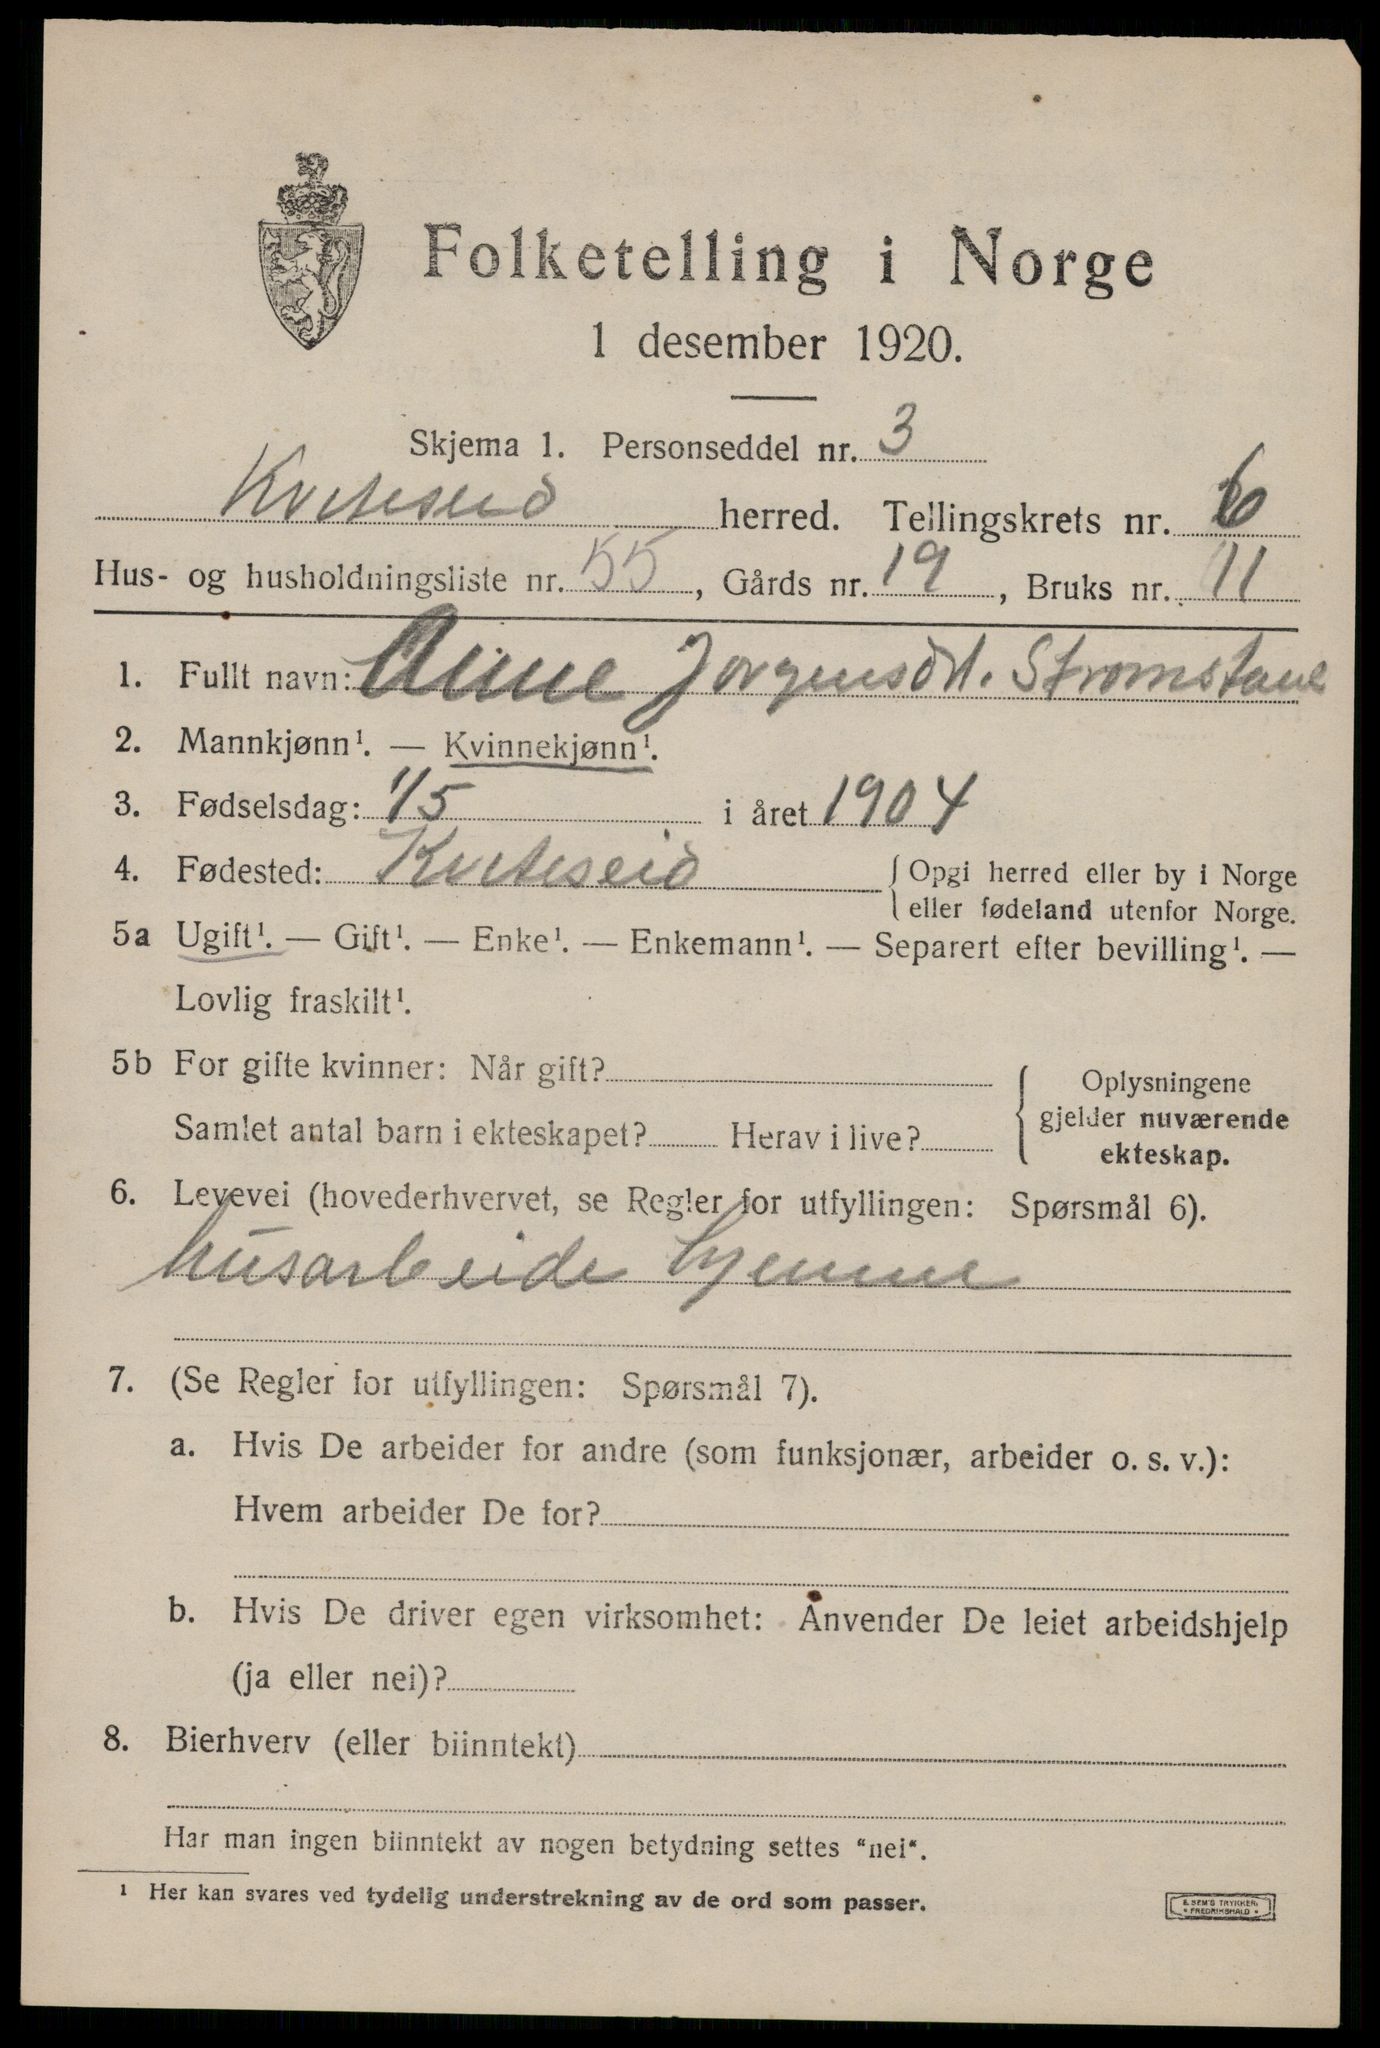 Folketelling i Norge
1 desember 1920.
Skjema 1. Personseddel nr. 3
Kviteseid herred. Tellingskrets nr. 6
Hus- og husholdningsliste nr. 55, Gårds nr. 19, Bruks nr. 11
1. Fullt navn: Anne Jorgensdt. Stromstane
2. Mannkjønn¹. — Kvinnekjønn¹.
3. Fødselsdag: 1/5 i året 1904
4. Fødested: Kviteseid {Opgi herred eller by i Norge
eller fødeland utenfor Norge.
5a Ugift¹. — Gift¹. — Enke¹. — Enkemann¹. — Separert efter bevilling¹. —
Lovlig fraskilt¹.
5b For gifte kvinner: Når gift?
Samlet antal barn i ekteskapet? Herav i live?
Oplysningene
gjelder nuværende
ekteskap.
6. Levevei (hovederhvervet, se Regler for utfyllingen: Spørsmål 6).
husarbeide hjemme
7. (Se Regler for utfyllingen: Spørsmål 7).
a. Hvis De arbeider for andre (som funksjonær, arbeider o. s. v.):
Hvem arbeider De for?
b. Hvis De driver egen virksomhet: Anvender De leiet arbeidshjelp
(ja eller nei)?
8. Bierhverv (eller biinntekt)
Har man ingen biinntekt av nogen betydning settes "nei".
¹ Her kan svares ved tydelig understrekning av de ord som passer.
E. SEM'S TRYKKERI
• FREDRIKSHALD •